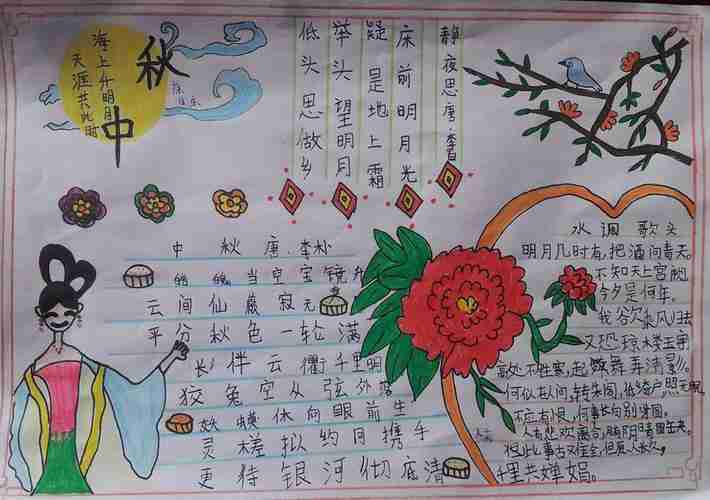 中秋
海上升明月
天涯共此时
静夜思 唐·李白
床前明月光
疑是地上霜
举头望明月
低头思做乡
中秋 唐.李朴
当空宝镜升
云间仙籁寂无
平分秋色一轮满
长伴云衢千里明
狡兔空从弦外落
妖蟆休向眼前生
灵槎拟约同携手
更待银河彻底清
水调歌头
明月几时有,把酒问青天。
不知天上宫阙
今夕是何年。
我欲乘风归去
又恐琼楼玉宇
高处不胜寒,起舞弄清影。
何似在人间,转朱阁,低绮户,照无眠
不应有恨,何事长向别时圆。
人有悲欢离合,月有阴晴圆缺
此事古难全,但愿人长久,
千里共婵娟。